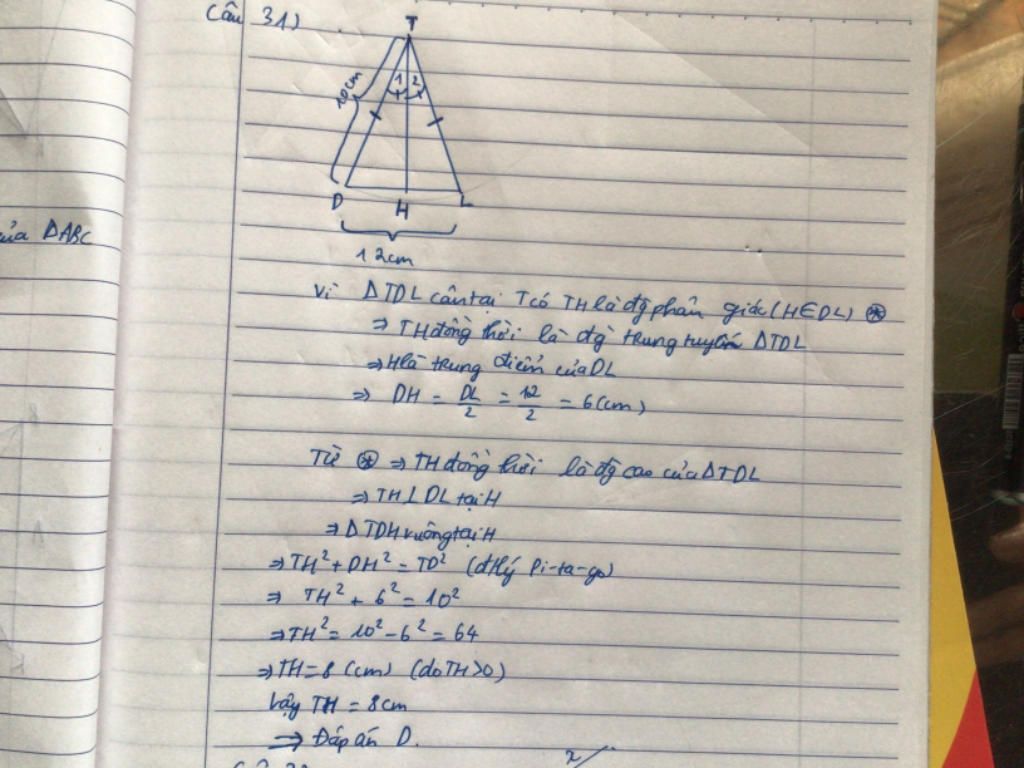 Câu 31)
T
1 2
10cm
D H L
12cm
của ΔABC
Vì ΔTDL cân tại T có TH là đg phân giác (H∈DL) ⊛
⇒ TH đồng thời là đg trung tuyến ΔTDL
⇒ H là trung điểm của DL
⇒ DH = DL/2 = 12/2 = 6 (cm)
Từ ⊛ ⇒ TH đồng thời là đg cao của ΔTDL
⇒ TH ⊥ DL tại H
⇒ Δ TDH vuông tại H
⇒ TH² + DH² = TD² (đ lý Pi-ta-go)
⇒ TH² + 6² = 10²
⇒ TH² = 10² - 6² = 64
⇒ TH = 8 (cm) (do TH > 0)
Vậy TH = 8cm
⇒ Đáp án D.
x